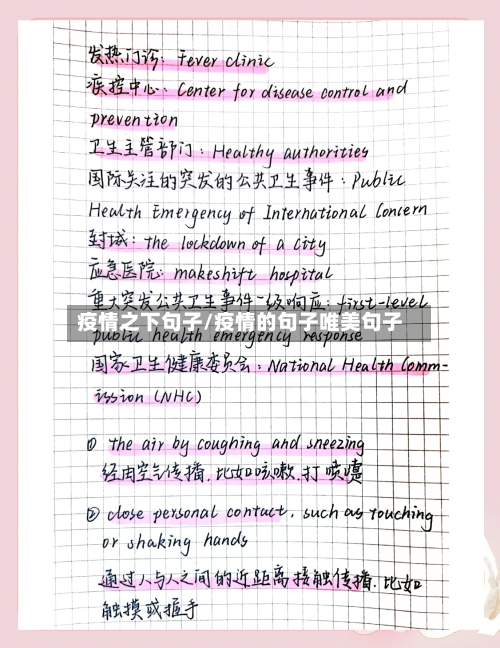 发热门诊: Fever clinic
疾控中心: Center for disease control and
prevention
卫生主管部门: Healthy authorities
国际关注的突发的公共卫生事件: Public
Health Emergency of International Concern
封城: the lockdown of a city
应急医院: makeshift hospital
重大突发公共卫生事件一级响应: first-level
疫情之下句子/疫情的句子唯美句子
public health emergency response
国家卫生健康委员会: National Health Comm-
ission (NHC)
① the air by coughing and sneezing
经由空气传播, 比如咳嗽, 打喷嚏
② close personal contact, such as touching
or shaking hands
通过人与人之间的近距离接触传播, 比如
触摸或握手